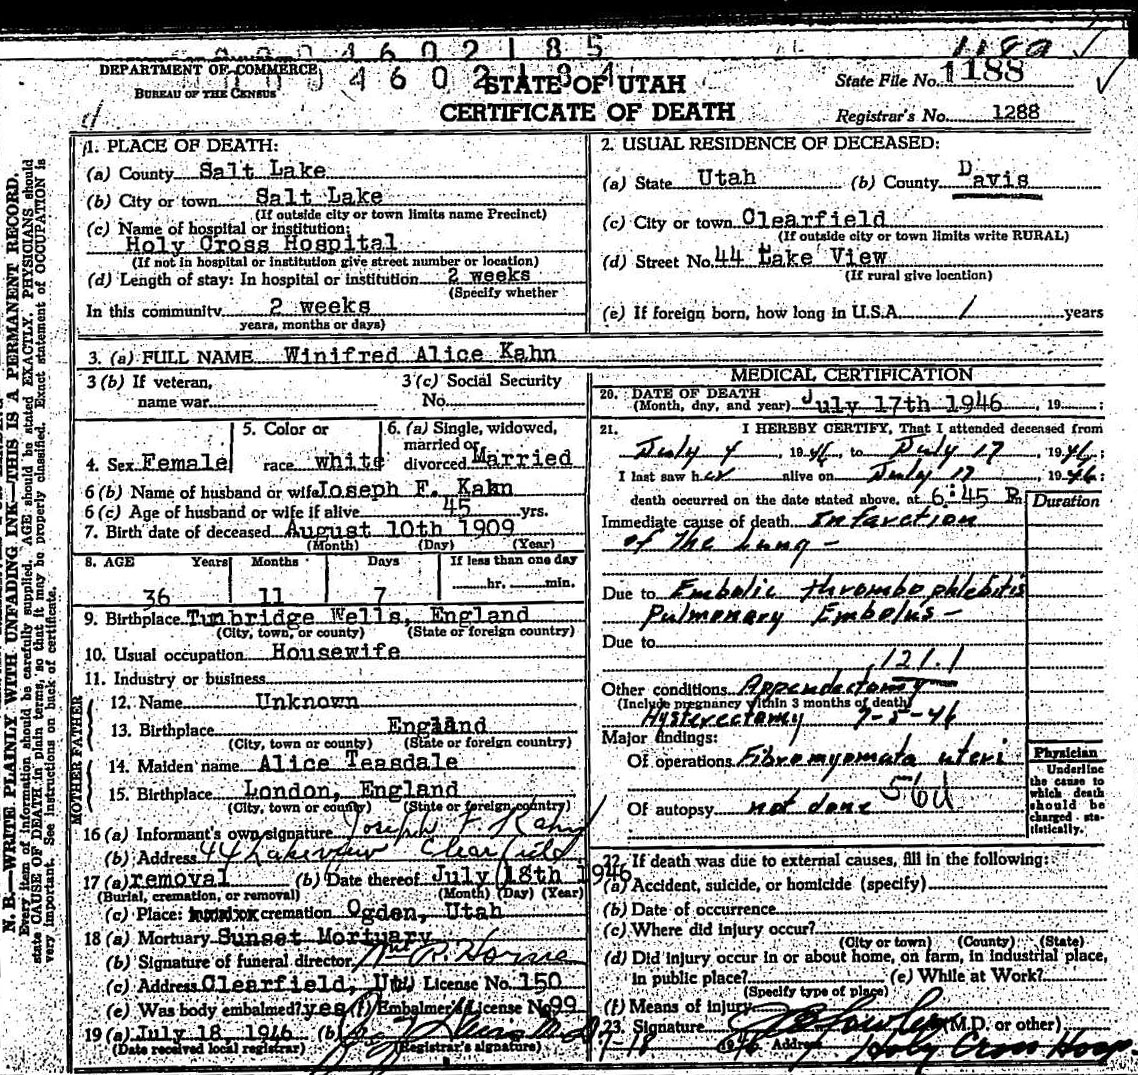 004602185
1189
DEPARTMENT OF COMMERCE
BUREAU OF THE CENSUS
004602184
STATE OF UTAH
CERTIFICATE OF DEATH
State File No. 1188
Registrar's No. 1288
N. B.—WRITE PLAINLY WITH UNFADING INK—THIS IS A PERMANENT RECORD.
Every item of information should be carefully supplied. AGE should be stated EXACTLY. PHYSICIANS should
state CAUSE OF DEATH in plain terms, so that it may be properly classified. Exact statement of OCCUPATION is
very important. See instructions on back of certificate.
1. PLACE OF DEATH:
(a) County Salt Lake
(b) City or town Salt Lake
(If outside city or town limits name Precinct)
(c) Name of hospital or institution:
Holy Cross Hospital
(If not in hospital or institution give street number or location)
(d) Length of stay: In hospital or institution 2 weeks
(Specify whether
In this community 2 weeks
years, months or days)
2. USUAL RESIDENCE OF DECEASED:
(a) State Utah (b) County Davis
(c) City or town Clearfield
(If outside city or town limits write RURAL)
(d) Street No. 44 Lake View
(If rural give location)
(e) If foreign born, how long in U.S.A. / years
3. (a) FULL NAME Winifred Alice Kahn
3 (b) If veteran,
name war
3 (c) Social Security
No.
4. Sex Female
5. Color or
race white
6. (a) Single, widowed,
married or
divorced Married
6 (b) Name of husband or wife Joseph F. Kahn
6 (c) Age of husband or wife if alive 45 yrs.
7. Birth date of deceased August 10th 1909
(Month) (Day) (Year)
8. AGE Years Months Days If less than one day
36 11 7 hr. min.
9. Birthplace Tunbridge Wells, England
(City, town, or county) (State or foreign country)
10. Usual occupation Housewife
11. Industry or business
FATHER
12. Name Unknown
13. Birthplace England
(City, town or county) (State or foreign country)
MOTHER
14. Maiden name Alice Teasdale
15. Birthplace London, England
(City, town or county) (State or foreign country)
16 (a) Informant's own signature Joseph F. Kahn
(b) Address 44 Lakeview Clearfield
17 (a) removal (b) Date thereof July 18th 1946
(Burial, cremation, or removal) (Month) (Day) (Year)
(c) Place: cremation Ogden, Utah
18 (a) Mortuary Sunset Mortuary
(b) Signature of funeral director
(c) Address Clearfield, Ut License No. 150
(e) Was body embalmed? yes (f) Embalmer's License No. 99
19 (a) July 18, 1946 (b)
(Date received local registrar) (Registrar's signature)
MEDICAL CERTIFICATION
20. DATE OF DEATH
(Month, day, and year) July 17th 1946, 19 ;
21. I HEREBY CERTIFY, That I attended deceased from
July 4, 1946, to July 17, 1946;
I last saw her alive on July 17, 1946;
death occurred on the date stated above, at 6:45 P.m
Duration
Immediate cause of death Infarction
of the Lung -
Due to Embolic thrombophlebitis
Pulmonary Embolus -
Due to
121.1
Other conditions Appendectomy
(Include pregnancy within 3 months of death)
Hysterectomy 7-5-46
Major findings:
Of operations Fibromyomata uteri
56d
Of autopsy not done
Physician
Underline
the cause to
which death
should be
charged sta-
tistically.
22. If death was due to external causes, fill in the following:
(a) Accident, suicide, or homicide (specify)
(b) Date of occurrence
(c) Where did injury occur?
(City or town) (County) (State)
(d) Did injury occur in or about home, on farm, in industrial place,
in public place? (e) While at Work?
(Specify type of place)
(f) Means of injury
23. Signature (M.D. or other)
7-18 1946 Address Holy Cross Hosp.